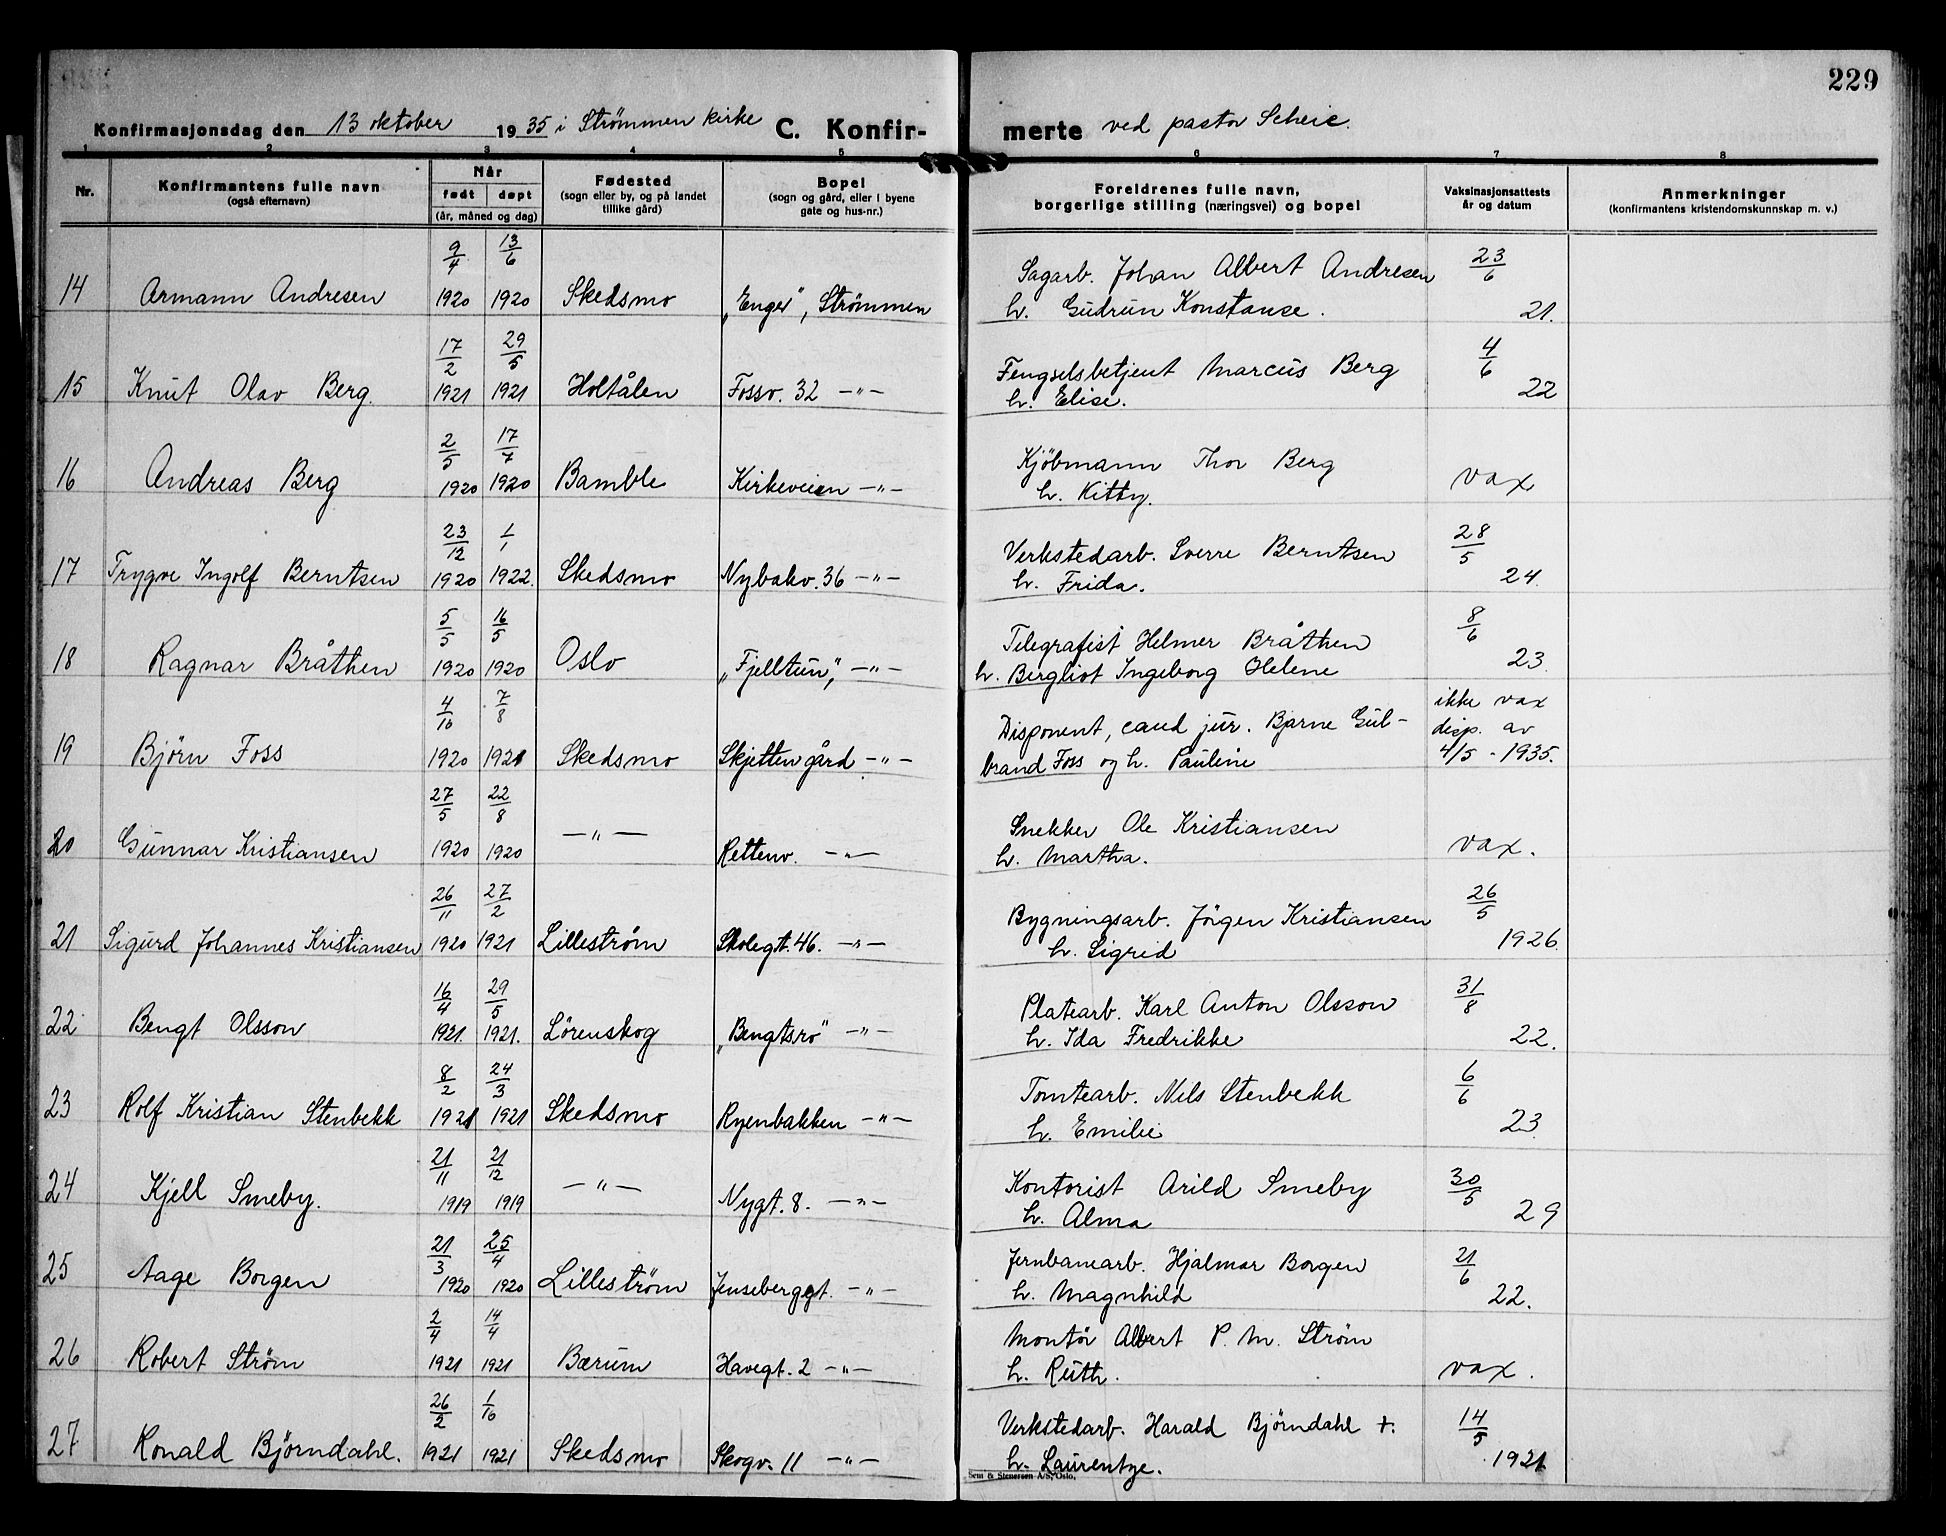 229
Konfirmasjonsdag den 13 oktober 1935 i Strømmen kirke C. Konfir- merte ved pastor Scheie.
1 2 3 4 5 6 7 8
Nr. Konfirmantens fulle navn (også efternavn) Når født døpt (år, måned og dag) Fødested (sogn eller by, og på landet tillike gård) Bopel (sogn og gård, eller i byene gate og hus-nr.) Foreldrenes fulle navn, borgerlige stilling (næringsvei) og bopel Vaksinasjonsattests år og datum Anmerkninger (konfirmantens kristendomskunnskap m. v.)
9/4 13/6 Sagarb. Johan Albert Andresen 23/6
14 Armann Andresen 1920 1920 Skedsmo „Enger", Strømmen h. Gudrun Konstanse. 21.
17/2 29/5 Fengselsbetjent Marcus Berg 4/6
15 Knut Olav Berg. 1921 1921 Holtålen Fossv. 32 —"— h. Elise. 22
2/5 17/7 Kjöbmann Thor Berg
16 Andreas Berg 1920 1920 Bamble Kirkeveien —"— h. Kitty. vax
23/12 1/1 Verkstedarb. Sverre Berntsen 28/5
17 Trygve Ingolf Berntsen 1920 1922. Skedsmo Nybakv. 36 —"— h. Frida. 24.
5/5 16/5 Telegrafist Helmer Bråthen 8/6
18 Ragnar Bråthen 1920 1920 Oslo „Fjelltun", —"— h. Bergliot Ingeborg Helene 23.
4/10 7/8 Disponent, cand jur. Bjarne Gul- ikke vax disp. av
19 Björn Foss 1920 1921 Skedsmo Skjetten gård —"— brand Foss og h. Pauline 4/5 - 1935.
27/5 22/8 Snekker Ole Kristiansen
20 Gunnar Kristiansen 1920 1920 —"— Rettenv. —"— h. Martha. vax.
26/11 27/2 Bygningsarb. Jörgen Kristiansen 26/5
21 Sigurd Johannes Kristiansen 1920 1921 Lilleström Skolegt. 46. —"— h. Sigrid 1926.
16/4 29/5 Platearb. Karl Anton Olsson 31/8
22 Bengt Olsson 1921. 1921. Lörenskog „Bengtsro" —"— h. Ida Fredrikke 22.
8/2 24/3 Tomtearb. Nils Stenbekk 6/6
23 Rolf Kristian Stenbekk 1921 1921 Skedsmo Ryenbakken —"— h. Emilie 23.
21/11 21/12 Kontorist Arild Smeby 30/5
24 Kjell Smeby. 1919 1919 —"— Nygt. 8. —"— h. Alma 29
21/3 25/4 Jernbanearb. Hjalmar Borgen 21/6
25 Aage Borgen 1920 1920 Lilleström Jenseberggt. —"— h. Magnhild 22.
2/4 14/4 Montör Albert P. M. Strøm
26 Robert Strøm 1921 1921 Bærum Havegt. 2 —"— h. Ruth. vax.
26/2 1/10 Verkstedarb. Harald Björndahl +. 14/5
27 Ronald Björndahl. 1921 1921 Skedsmo Skogv. 11 —"— h. Laurentze. 1921
Sem & Stenersen A/S, Oslo.